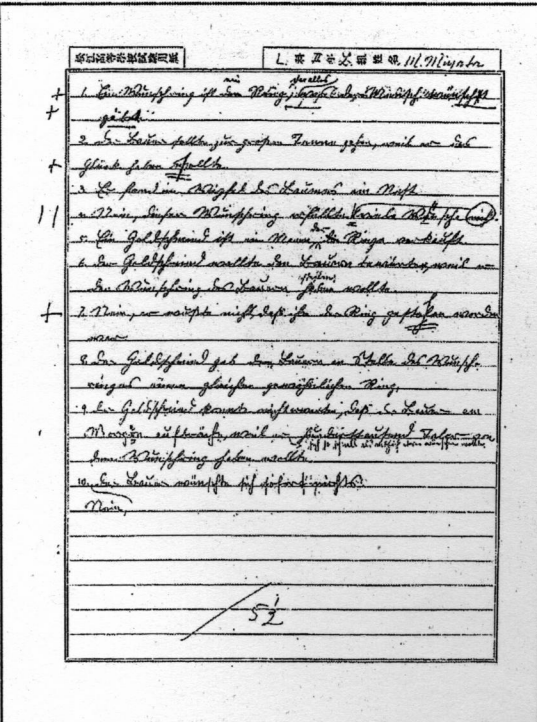 松江高等學校試驗用紙
姓名 M. Miyata
ein
1. Ein Wunschring ist der Ring,
gäbe.
2. der Bauer sollte zur großen Tanne gehen, weil er das
Glück haben wollte.
3. Es stand im Wipfel des Baumes ein Nest
4. Nein, dieser Wunschring erfüllte viele Wünsche nicht
der
5. Ein Goldschmied ist ein Mann, Ringe verkauft.
6. der Goldschmied wollte den Bauern bewirten, weil er
stehlen
den Wunschring des Bauern haben wollte.
7. Nein, er wußte nicht, daß ihm der Ring gestohlen worden
war.
8. der Goldschmied gab dem Bauern an Stelle des Wunsch-
ringes einen gleichen gewöhnlichen Ring.
9. der Goldschmied konnte nicht warten, daß der Bauer am
Morgen aufbräche, weil er hunderttausend Taler von
dem Wunschring haben wollte.
10. der Bauer wünschte sich sofort nichts.
Nein,
5 1/2